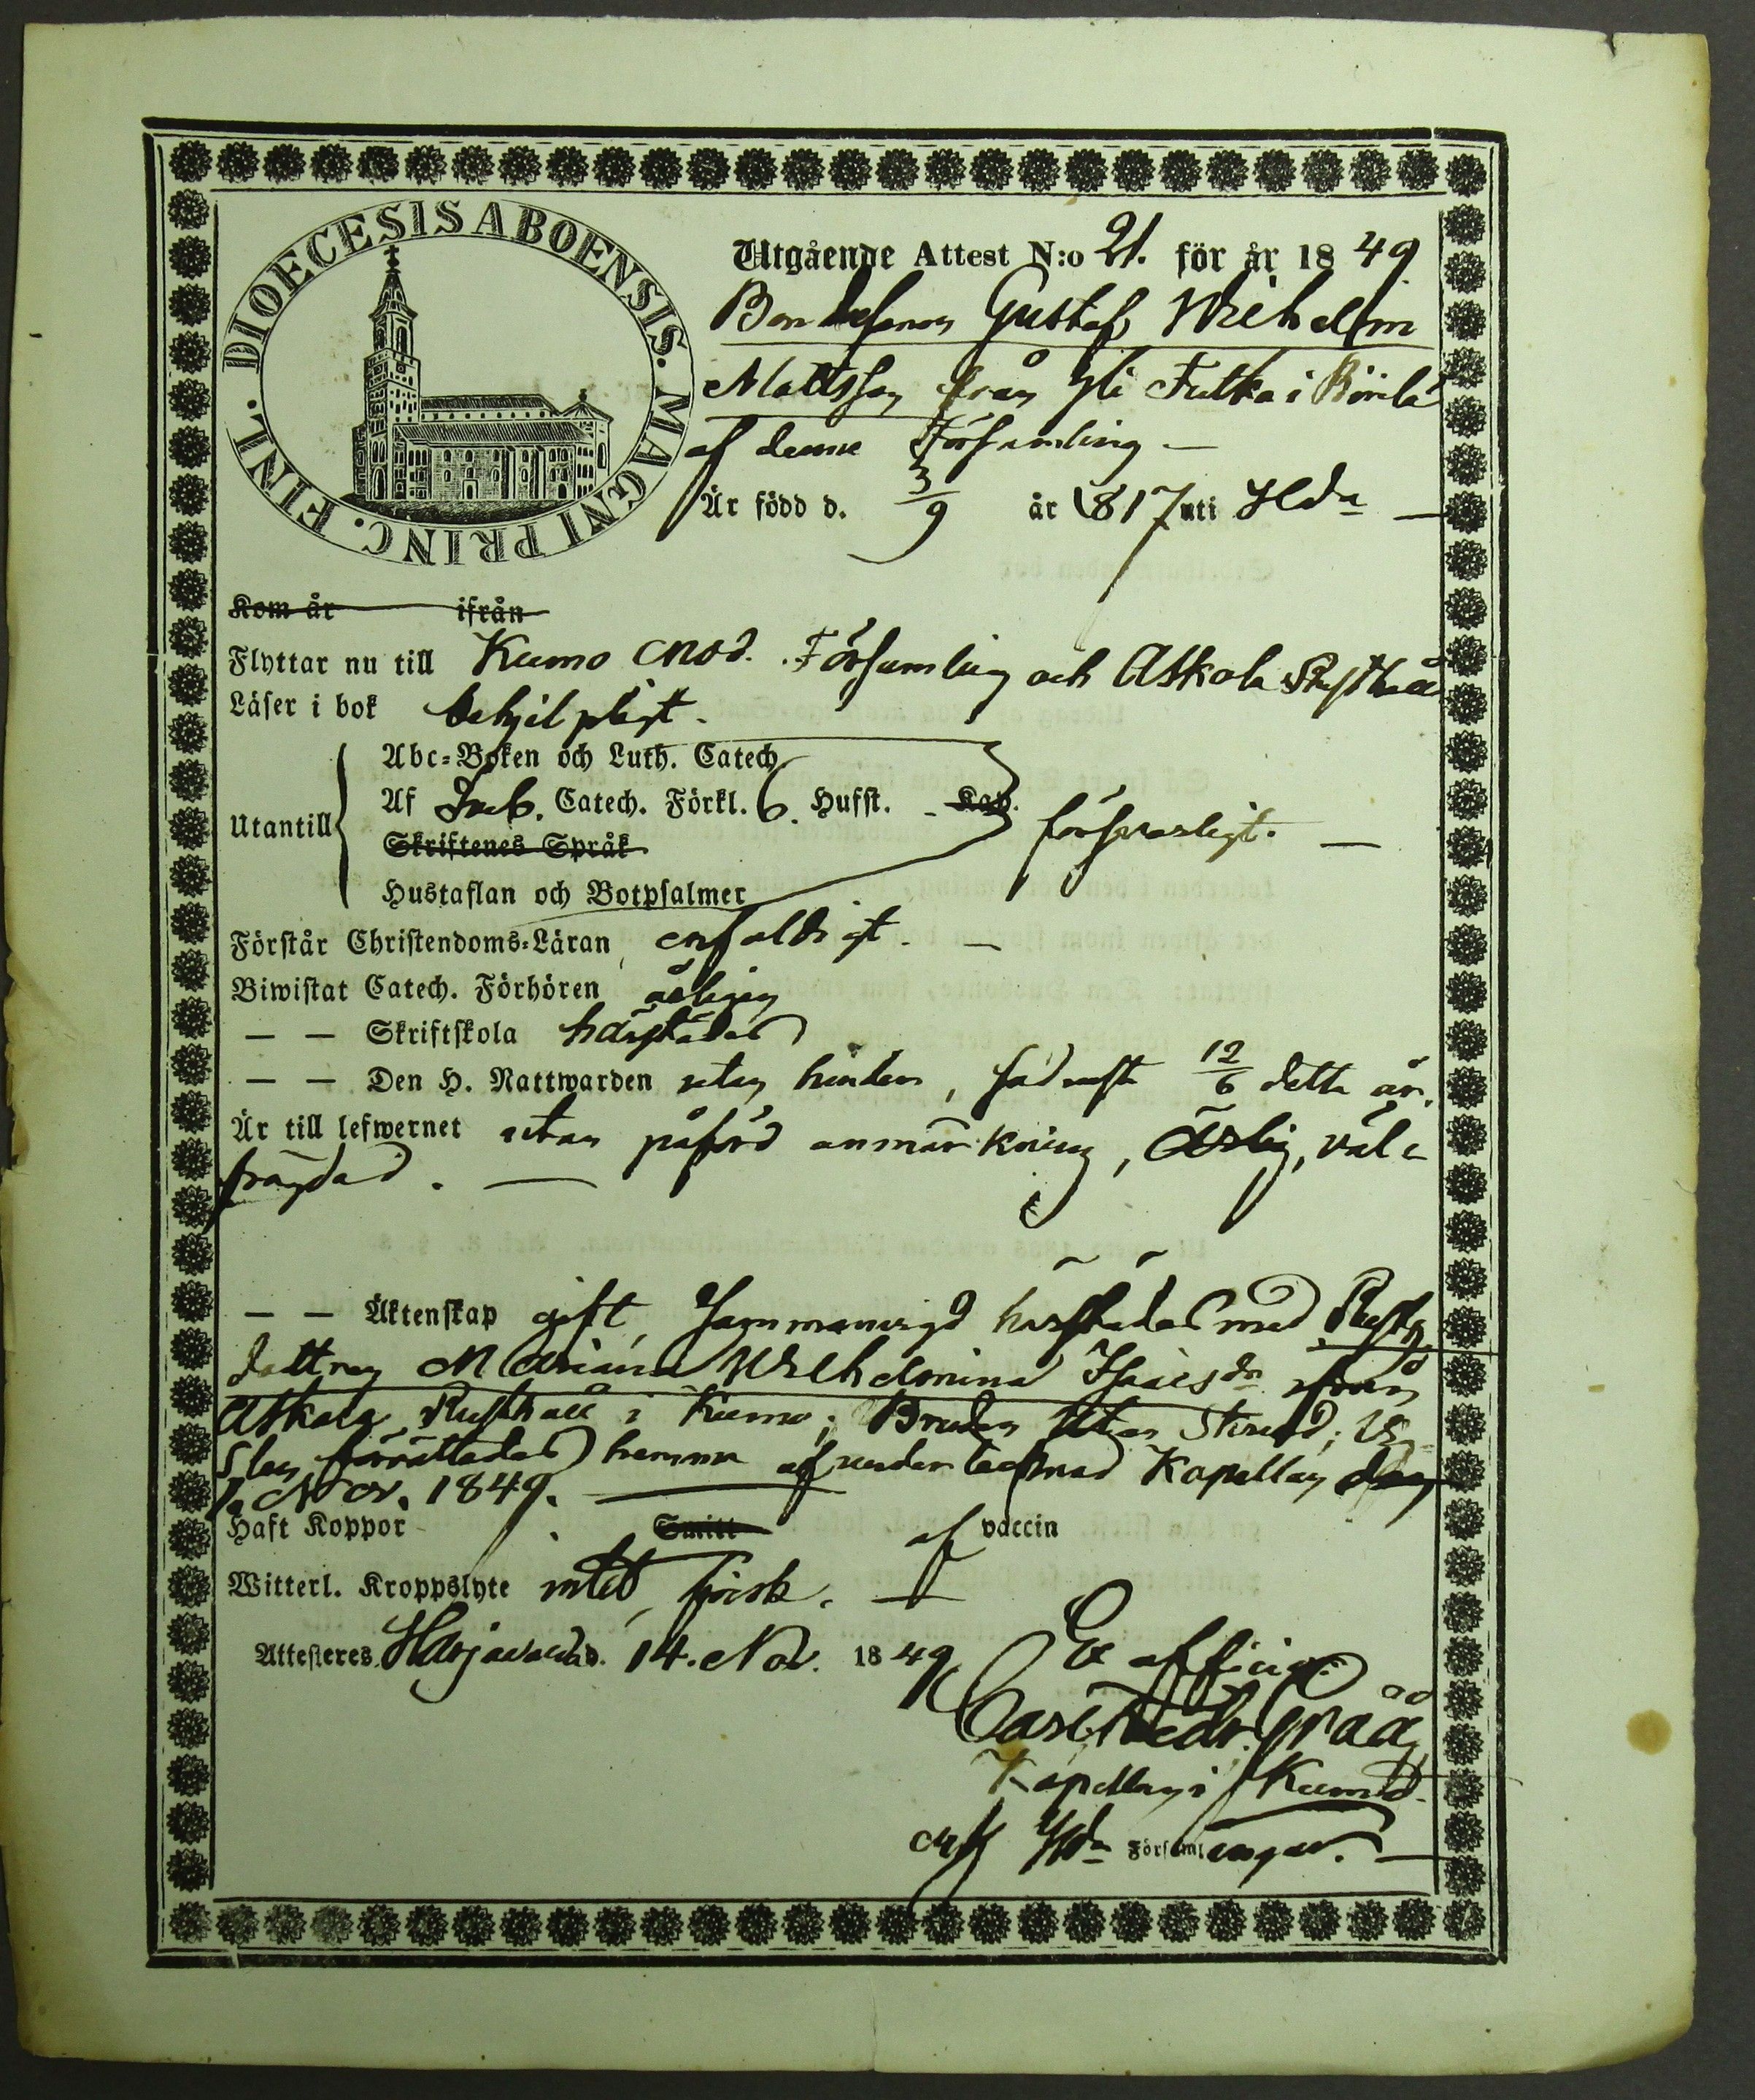 DIOECESIS ABOENSIS. MAGNI PRINC. FINL.
Utgående Attest N:o 21. för år 1849
Bondesonen Gustaf Wilhelm
Mattsson från Yli Futka i
af denne Församling —
Är född d. 3/9 år 1817 uti H—da —
Kom år ifrån
Flyttar nu till Kumo mod. Församling och Askola Rusthåll
Läser i bok behjelpligt.
Abc-Boken och Luth. Catech.
Utantill Af Catech. Förkl. 6. Hufst. - Kap. försvarligt. —
Skriftenes Språk
Hustaflan och Botpsalmer
Förstår Christendoms-Läran enfaldigt. —
Biwistat Catech. Förhören årligen
— — Skriftskola härstädes
— — Den H. Nattwarden utan hinder, sednast 12/6 detta år.
Är till lefwernet utan påförd anmärkning, ärlig, väl
frägdad. —
— — Äktenskap gift, sammanvigd härstädes med Rusth.
dottren Mariana Wilhelmina Isaacsdr ifrån
Askola Rusthåll i Kumo; Bruden utan
förrättades hemma af undertecknad Kapellan den
Nov. 1849. —
Haft Koppor Smitt af vaccin
Witterl. Kroppslyte intet, frisk. —
Attesteres Harjavalta d. 14. Nov. 1849
Ex officio
Carl Fredr. Gråå
Kapellan i Kumo
och H—da Församlingar. —